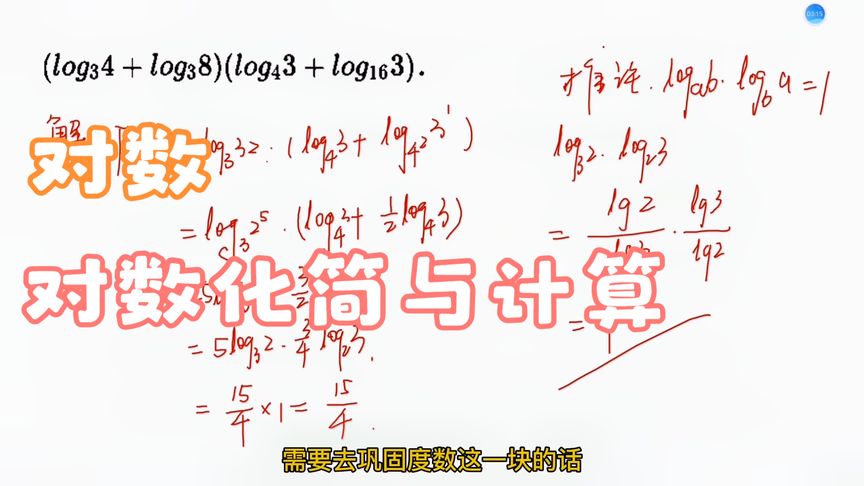 03:15
(log₃4 + log₃8)(log₄3 + log₁₆3).
解
对数
log₃32·(log₄3 + log₄²3¹)
= log₃2⁵·(log₄3 + ½log₄3)
对数化简与计算
= 5log₃2·¾log₂3.
= 15/4 × 1 = 15/4.
推论. logₐb·log_b a = 1
log₃2·log₂3
= lg2/lg3 · lg3/lg2
= 1
需要去巩固度数这一块的话